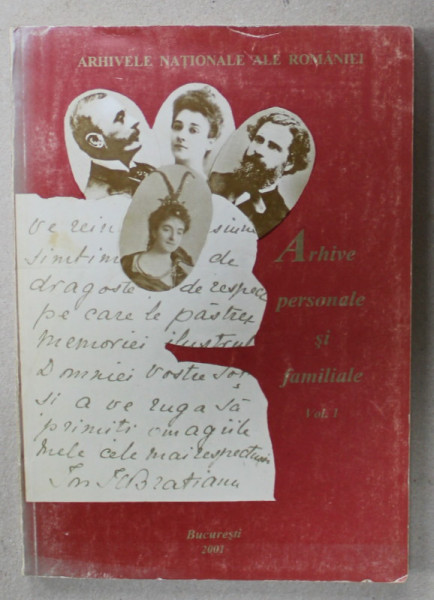 ARHIVELE NAȚIONALE ALE ROMÂNIEI
Arhive
personale
și
familiale
Vol. I
ve rein
simtim de
dragoste de respect
pe care le păstrez
memoriei ilustrul
Domniei Vostre soț
și a ve ruga să
primiti omagiile
mele cele mai respectuos
Ion I C Bratianu
București
2001